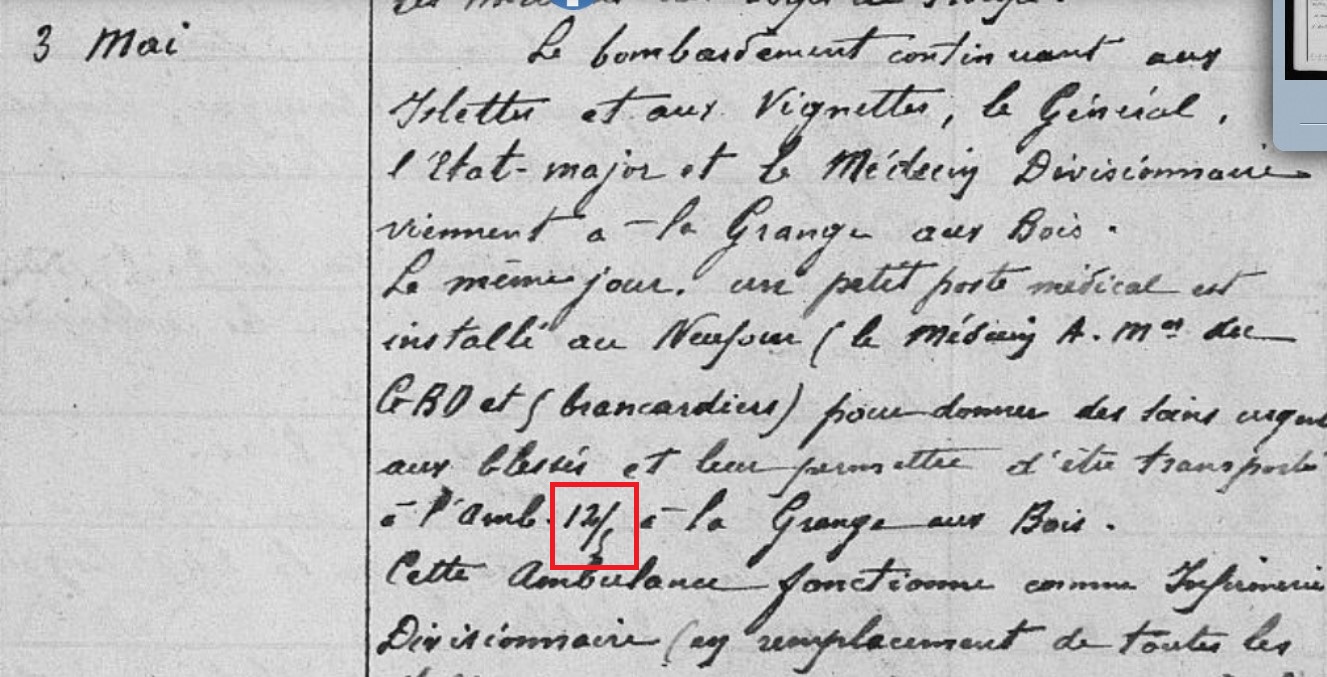 3 Mai
Le bombardement continuant aux
Islettes et aux Vignettes, le Général,
l'Etat-major et le Médecin Divisionnaire
viennent à la Grange aux Bois.
Le même jour, un petit poste médical est
installé au Neufour (le Médecin A. M^or du
GBD et 5 brancardiers) pour donner des soins urgent
aux blessés et leur permettre d'être transporté
à l'Amb. 12/5 à la Grange aux Bois.
Cette Ambulance fonctionne comme Infirmerie
Divisionnaire (en remplacement de toutes les